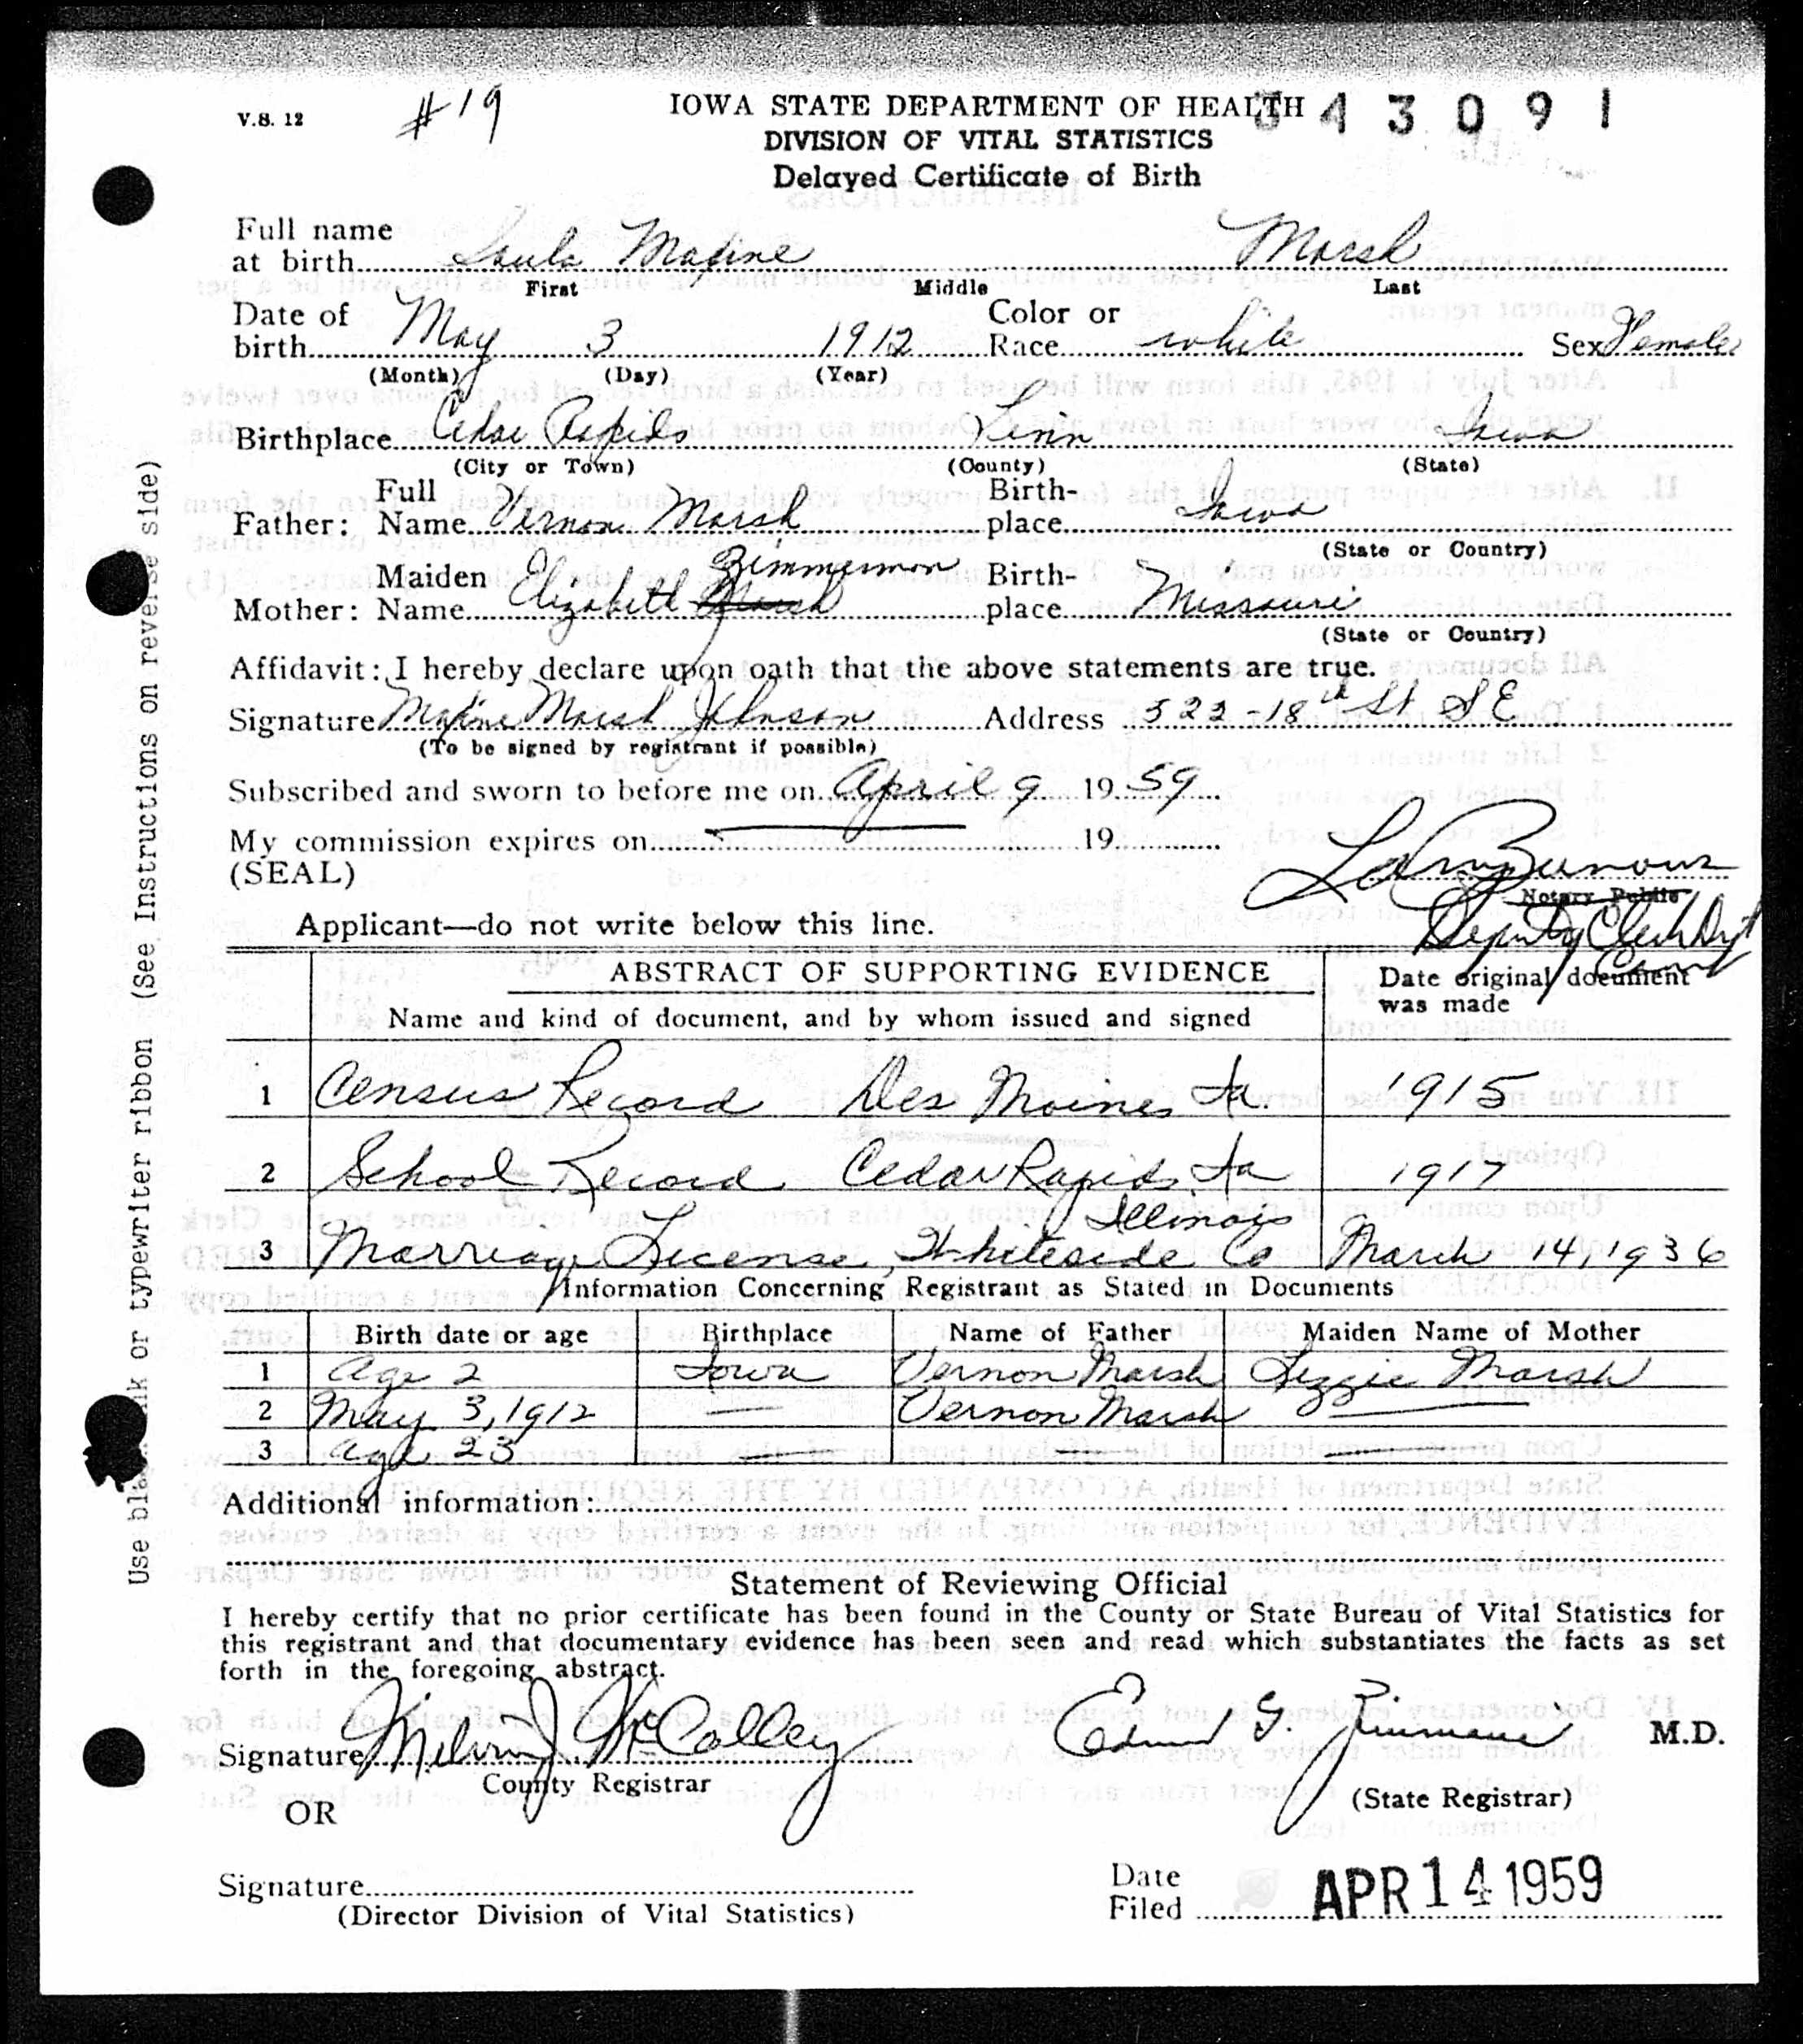 V.S. 12 #19 IOWA STATE DEPARTMENT OF HEALTH 343091
DIVISION OF VITAL STATISTICS
Delayed Certificate of Birth
Full name
at birth Maxine Marsh
First Middle Last
Date of birth May 3 1912 Color or Race white Sex Female
(Month) (Day) (Year)
Birthplace Cedar Rapids Linn Iowa
(City or Town) (County) (State)
Father: Full Name Vernon Marsh Birth-place Iowa
(State or Country)
Zimmerman
Mother: Maiden Name Elizabeth Marsh Birth-place Missouri
(State or Country)
Affidavit: I hereby declare upon oath that the above statements are true.
Signature Maxine Marsh Johnson Address 522-18th St SE
(To be signed by registrant if possible)
Subscribed and sworn to before me on April 9 1959
My commission expires on 19
(SEAL)
Notary Public
Deputy Clerk Dist Court
Applicant—do not write below this line.
ABSTRACT OF SUPPORTING EVIDENCE Date original document
Name and kind of document, and by whom issued and signed was made
1 Census Record Des Moines Ia. 1915
2 School Record Cedar Rapids, Ia 1917
Illinois
3 Marriage License, Whiteside Co March 14, 1936
Information Concerning Registrant as Stated in Documents
Birth date or age Birthplace Name of Father Maiden Name of Mother
1 Age 2 Iowa Vernon Marsh Lizzie Marsh
2 May 3, 1912 — Vernon Marsh —
3 Age 23 — — —
Additional information:
Statement of Reviewing Official
I hereby certify that no prior certificate has been found in the County or State Bureau of Vital Statistics for
this registrant and that documentary evidence has been seen and read which substantiates the facts as set
forth in the foregoing abstract.
Signature Melvin J McCalley Edmund G. Zimmerer M.D.
County Registrar (State Registrar)
OR
Signature Date Filed APR 14 1959
(Director Division of Vital Statistics)
Use black ink or typewriter ribbon (See Instructions on reverse side)